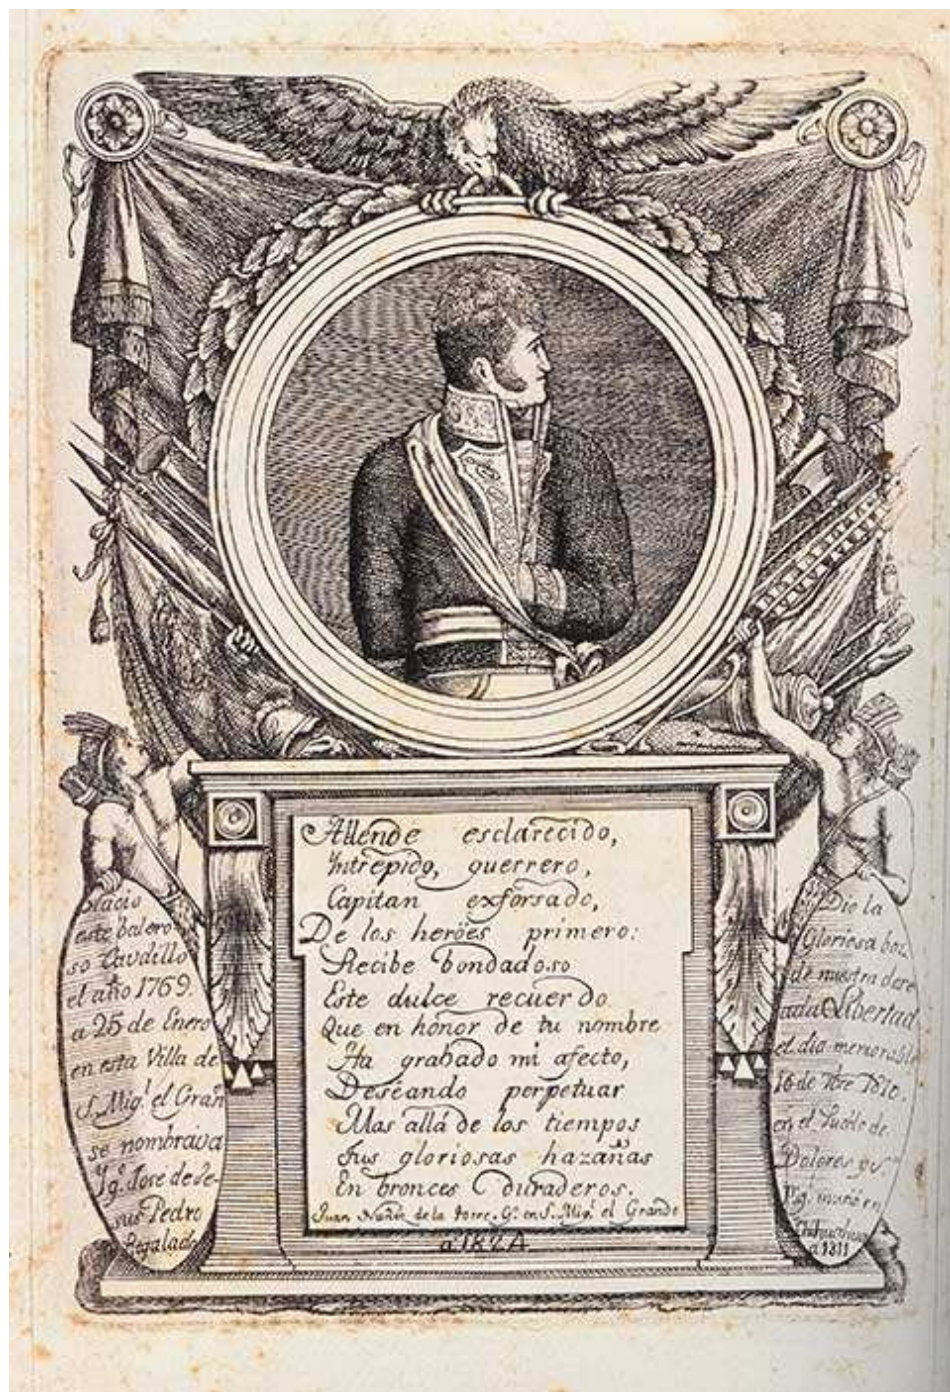 Allende esclarecido,
Intrepido, guerrero,
Capitan exforsado,
De los heröes primero:
Recibe bondadoso
Este dulce recuerdo
Que en honor de tu nombre
Ha grabado mi afecto,
Deséando perpetuar
Mas allá de los tiempos
Tus gloriosas hazañas
En bronces duraderos.
Juan Nuñez de la torre, G.º en S. Mig.l el Grande
a 1824.
Nacio
este balero
so Caudillo
el año 1769.
a 25 de Enero
en esta Villa de
S. Mig.l el Gran
se nombrava
Yg.º Jose de Je-
sus Pedro
Regalado
Dio la
Gloriosa boz
de nuestra dese
ada Libertad
el dia memorable
16 de 7bre 1810.
en el Pueblo de
Dolores
murió en
Chihuahua
a 1811